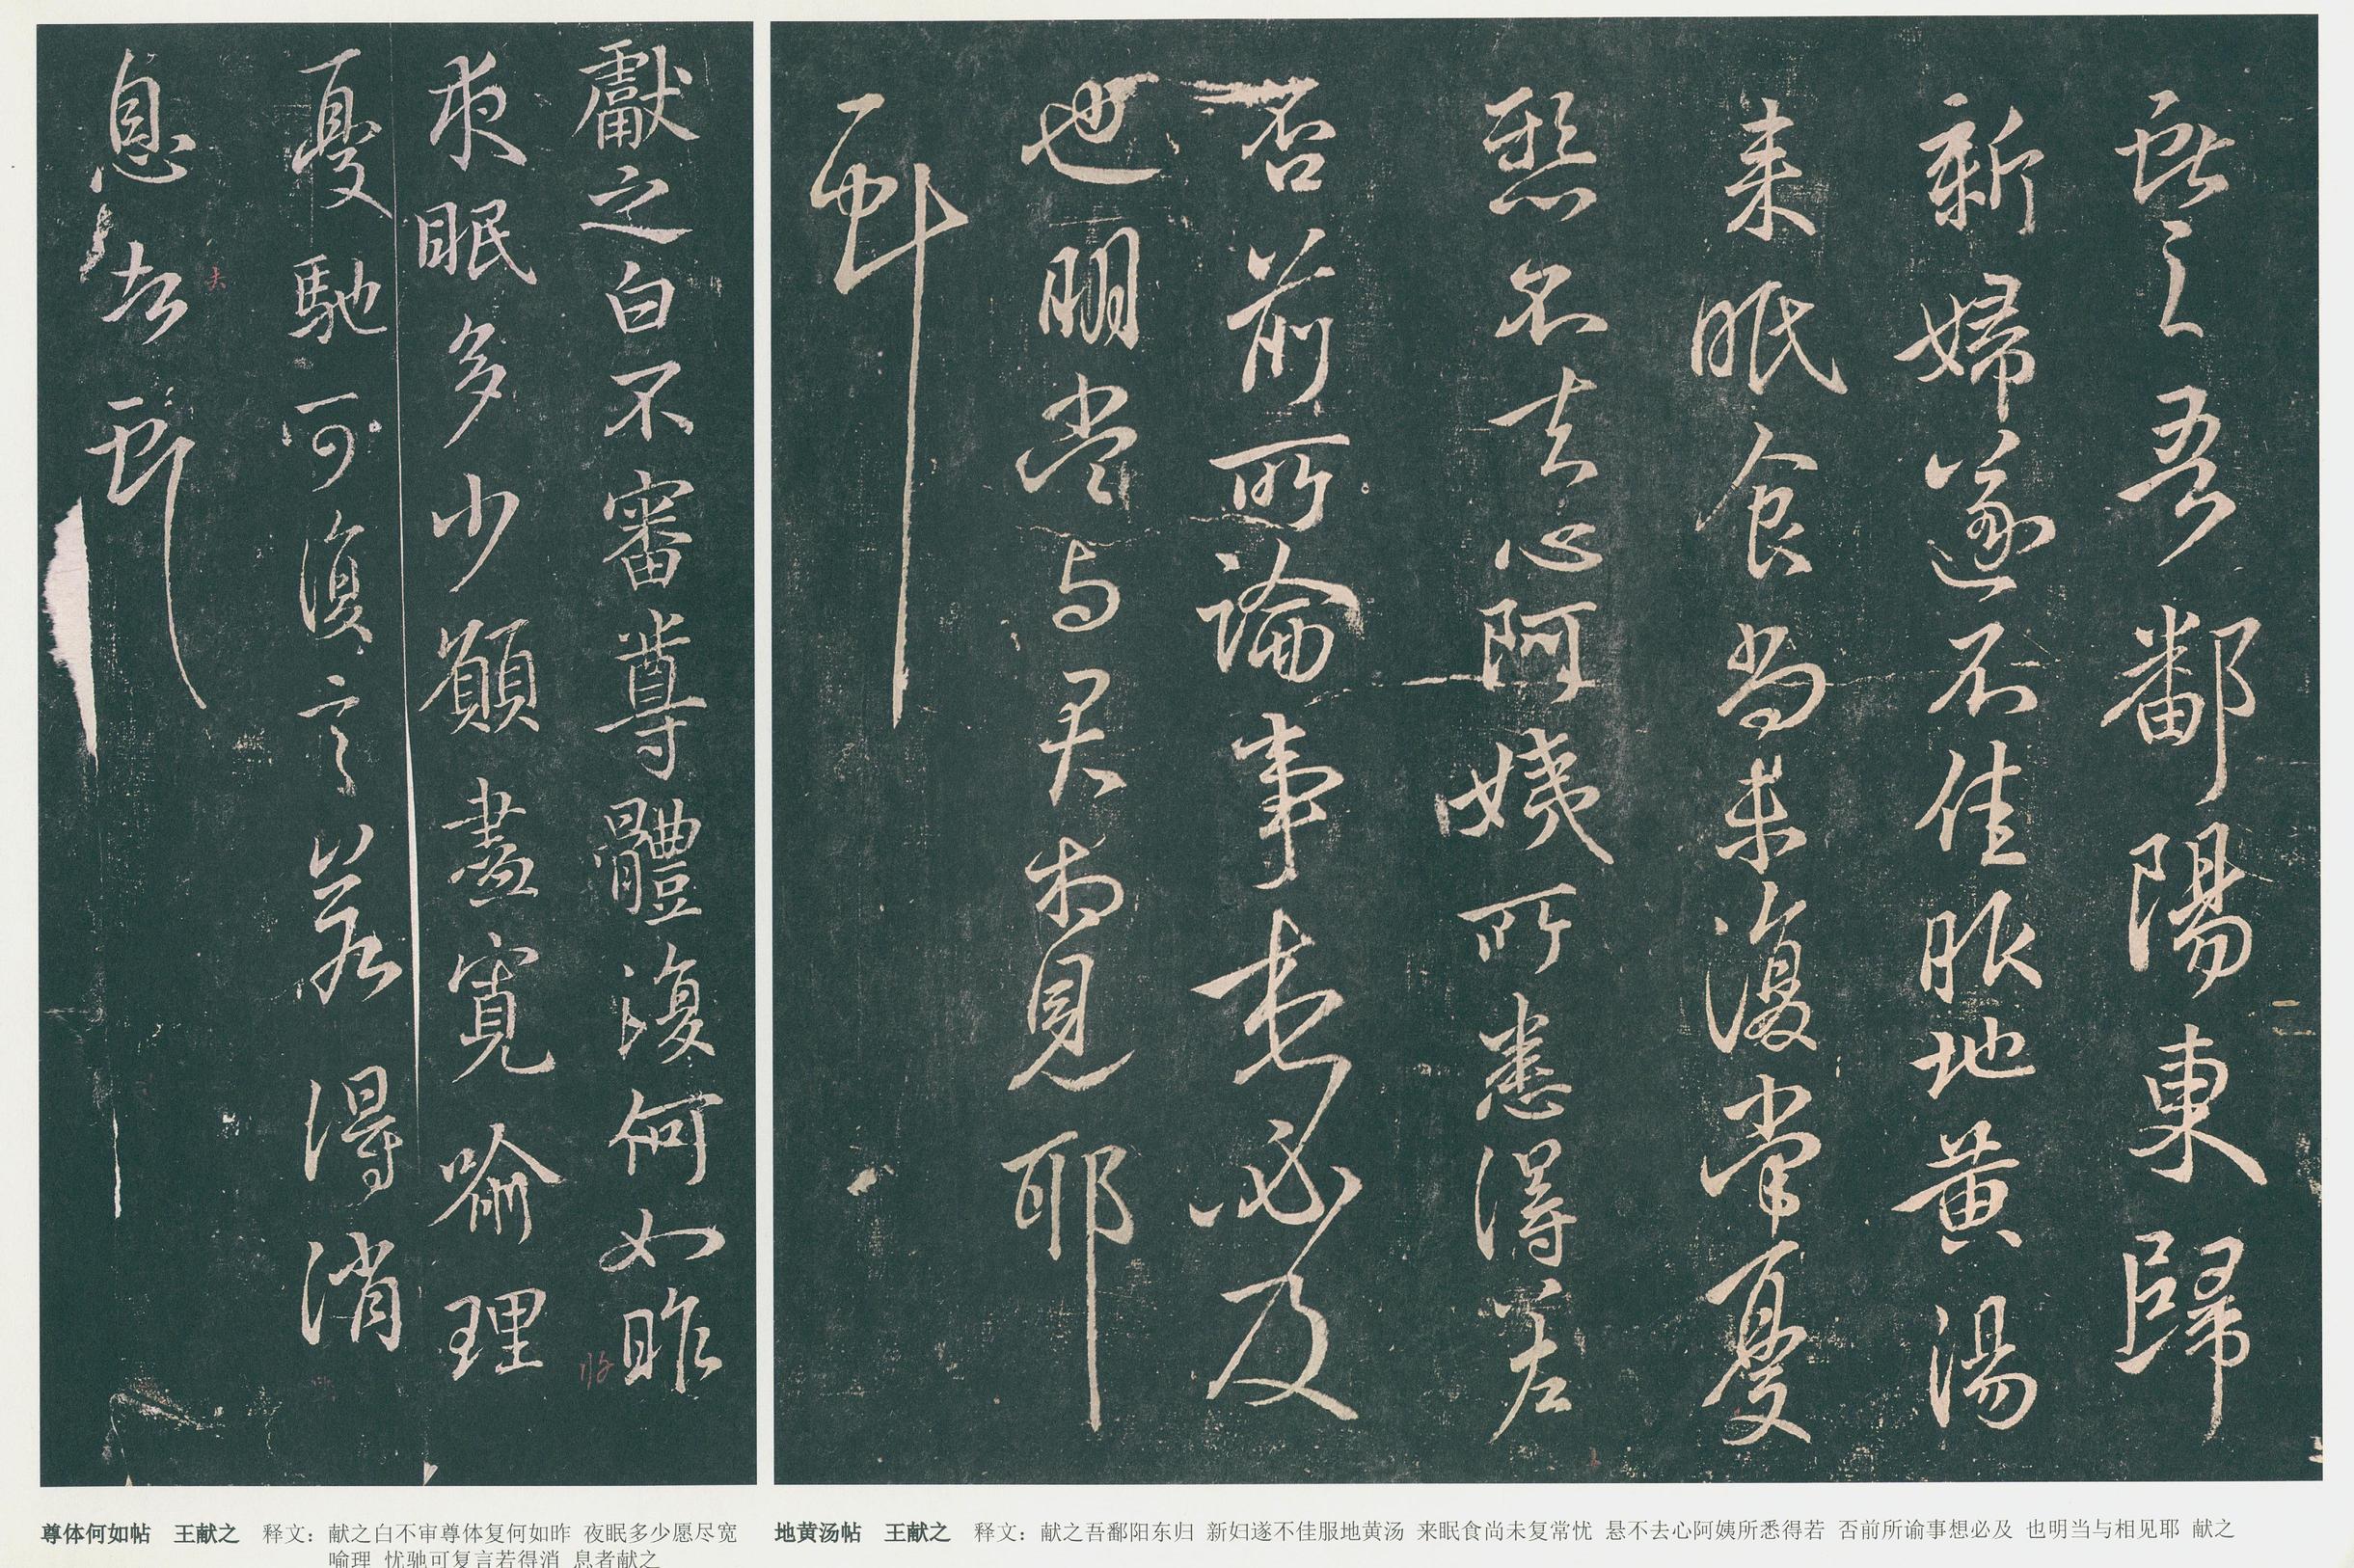 獻之吾鄱陽東歸
新婦遂不佳服地黃湯
来眠食尚未復常憂
懸不去心阿姨所悉得差
否前所論事想必及
也明當与君相見耶
獻之
獻之白不審尊體復何如昨
夜眠多少願盡寬喻理
憂馳可復言若得消
息者獻之
尊体何如帖 王献之 释文：献之白不审尊体复何如昨 夜眠多少愿尽宽
喻理 忧驰可复言若得消 息者献之
地黄汤帖 王献之 释文：献之吾鄱阳东归 新妇遂不佳服地黄汤 来眠食尚未复常忧 悬不去心阿姨所悉得若 否前所谕事想必及 也明当与相见耶 献之